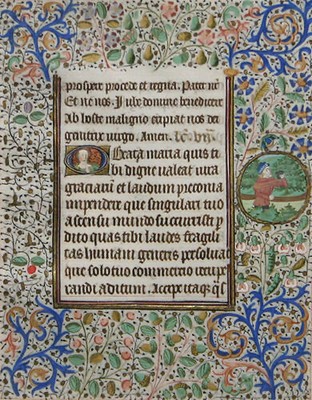 prospere procede et regna. Pater nr
Et ne nos. Iube domine benedicere
Ab hoste maligno eripiat nos dei
genitrix virgo. Amen.
O beata maria quis ti
bi digne valeat iura
graciarū et laudum preconia
impendere que singulari tuo
assensu mundo sucurristi p̄
dito quas tibi laudes fragili
tas humani generis persoluat
que solo tuo commercio recupe
randi aditum. Accipe itaq̄